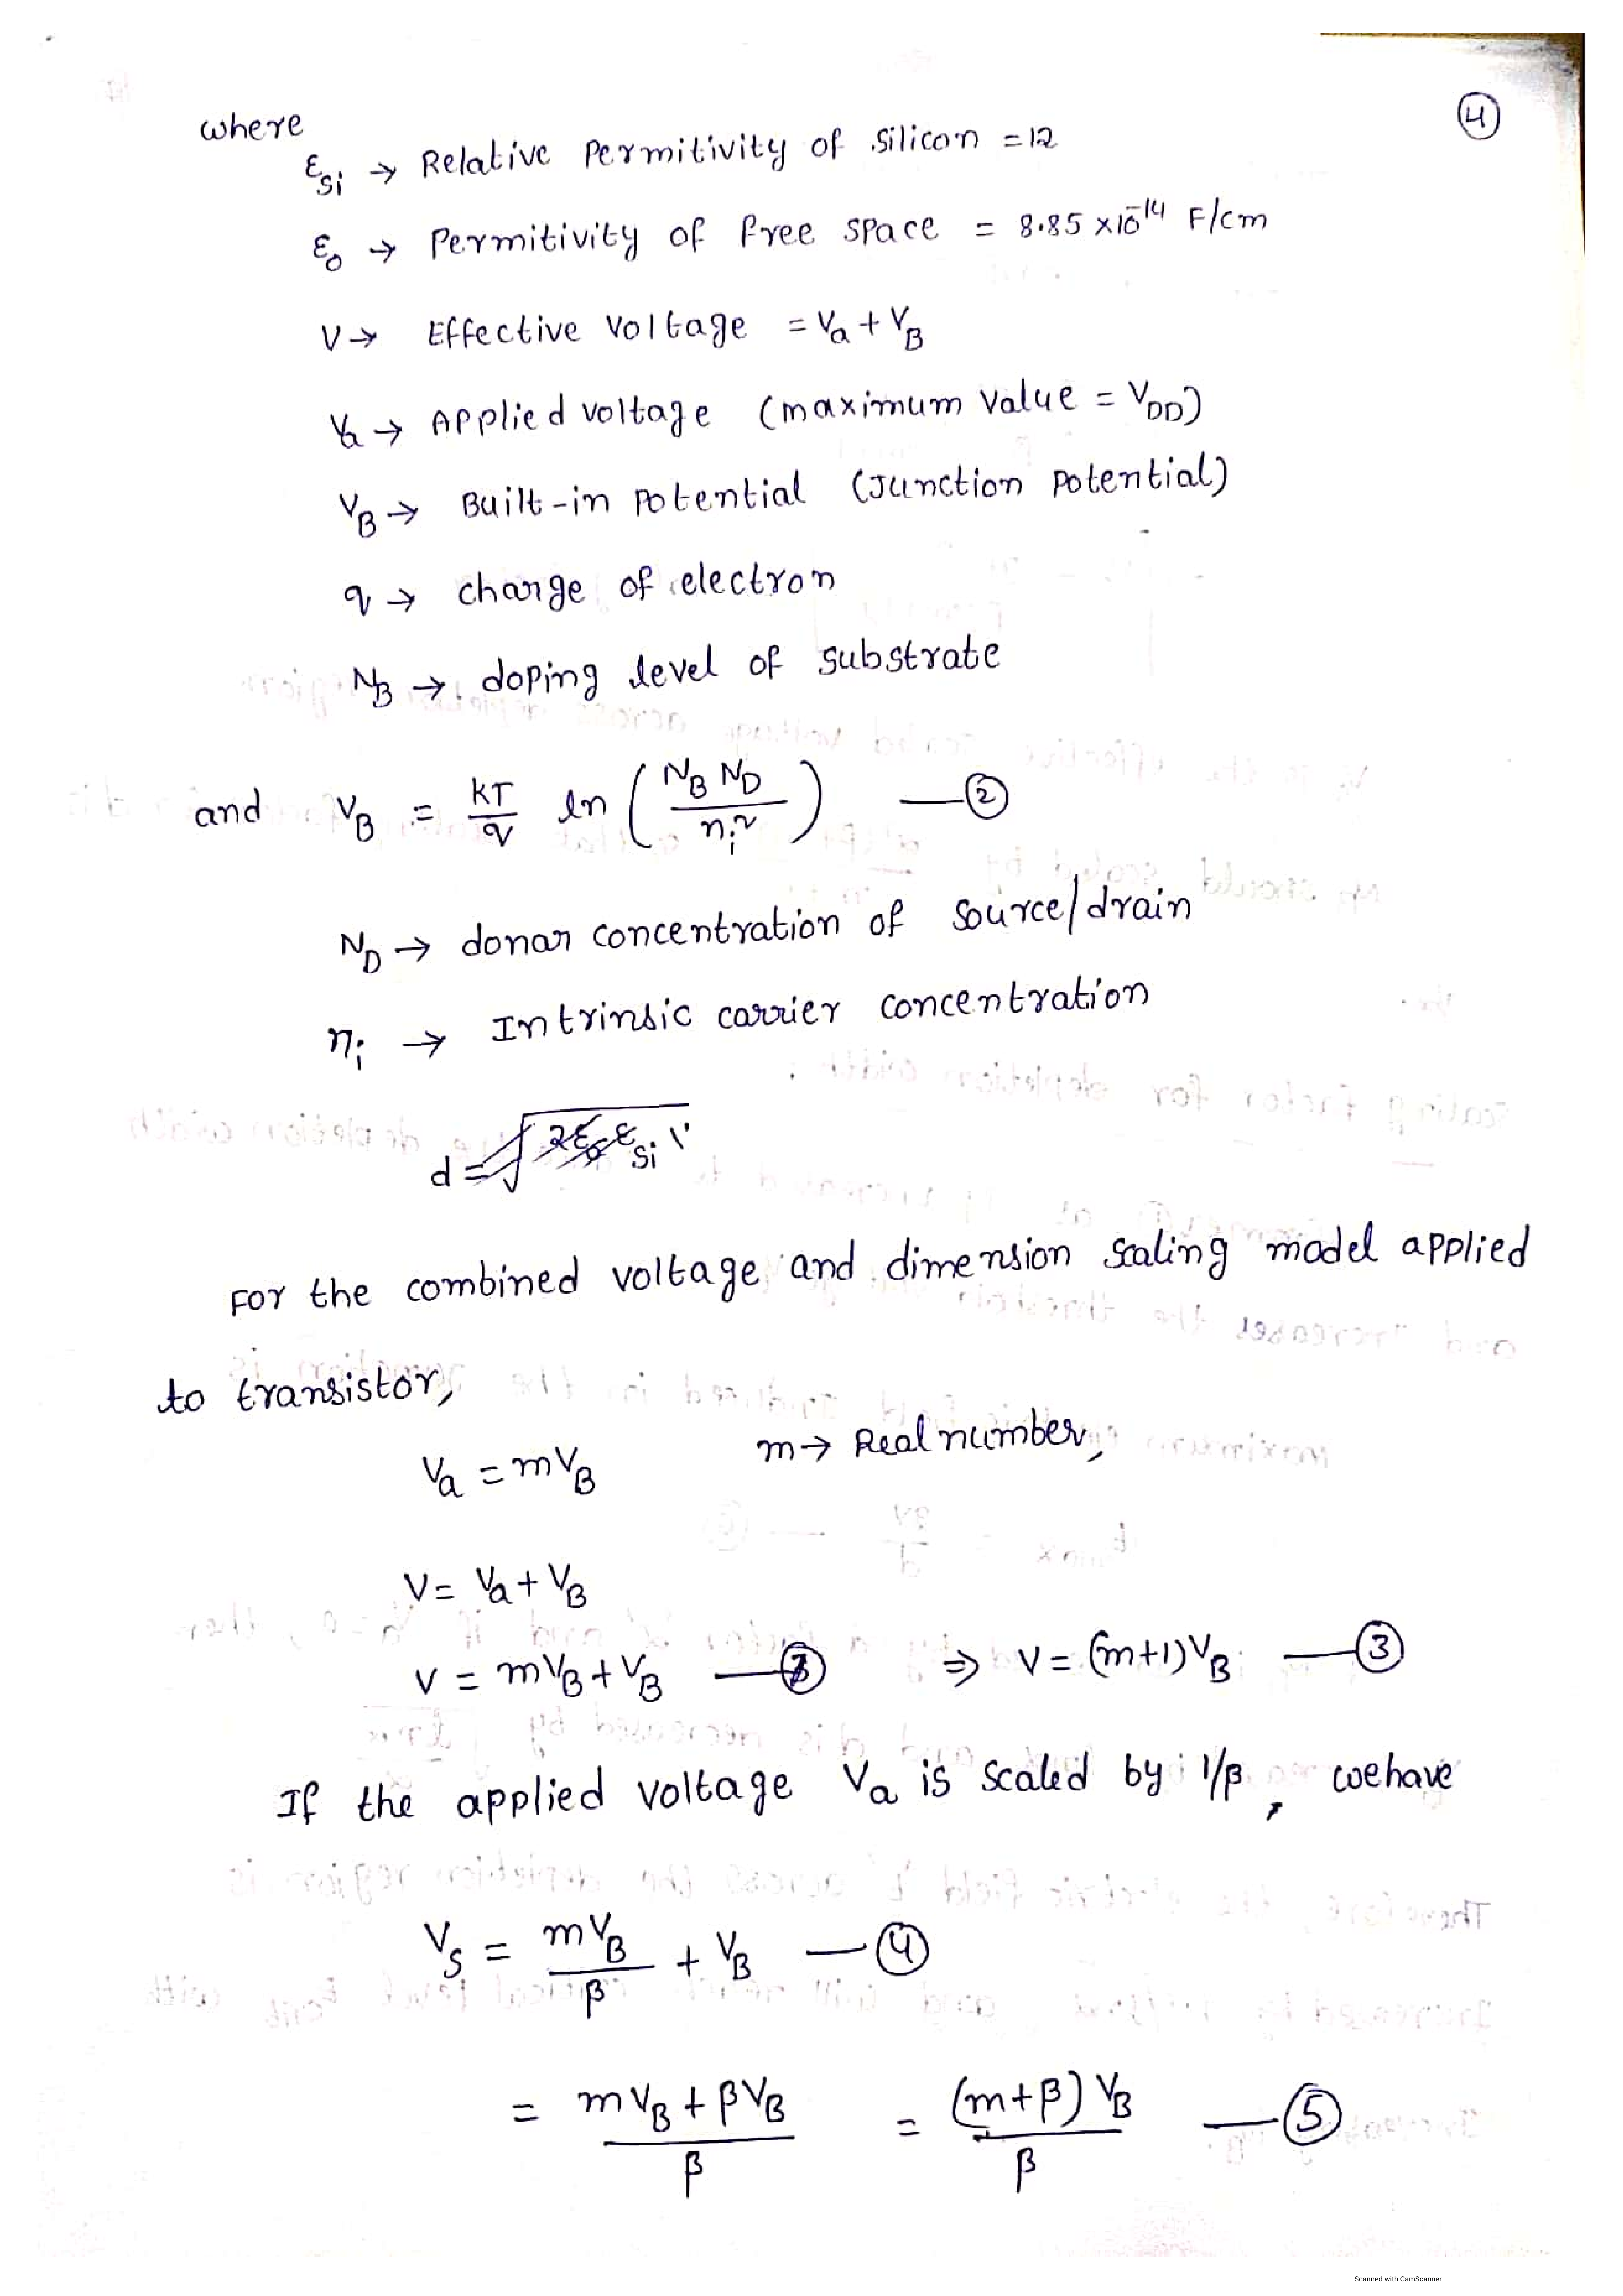 ④
where
ε_Si → Relative Permitivity of Silicon = 12
ε_0 → Permitivity of free space = 8.85 × 10^-14 F/cm
V → Effective Voltage = V_a + V_B
V_a → Applied voltage (maximum value = V_DD)
V_B → Built-in potential (Junction potential)
q → charge of electron
N_B → doping level of substrate
and V_B = kT/q ln (N_B N_D / n_i^2) —②
N_D → donar concentration of source/drain
n_i → Intrinsic carrier concentration
d = √2ε_0 ε_Si V
For the combined voltage and dimension scaling model applied
to transistor,
V_a = mV_B m → Real number,
V = V_a + V_B
V = mV_B + V_B — ⇒ V = (m+1)V_B —③
If the applied voltage V_a is scaled by 1/β, we have
V_S = mV_B/β + V_B —④
= (mV_B + βV_B)/β = (m+β)V_B/β —⑤
Scanned with CamScanner